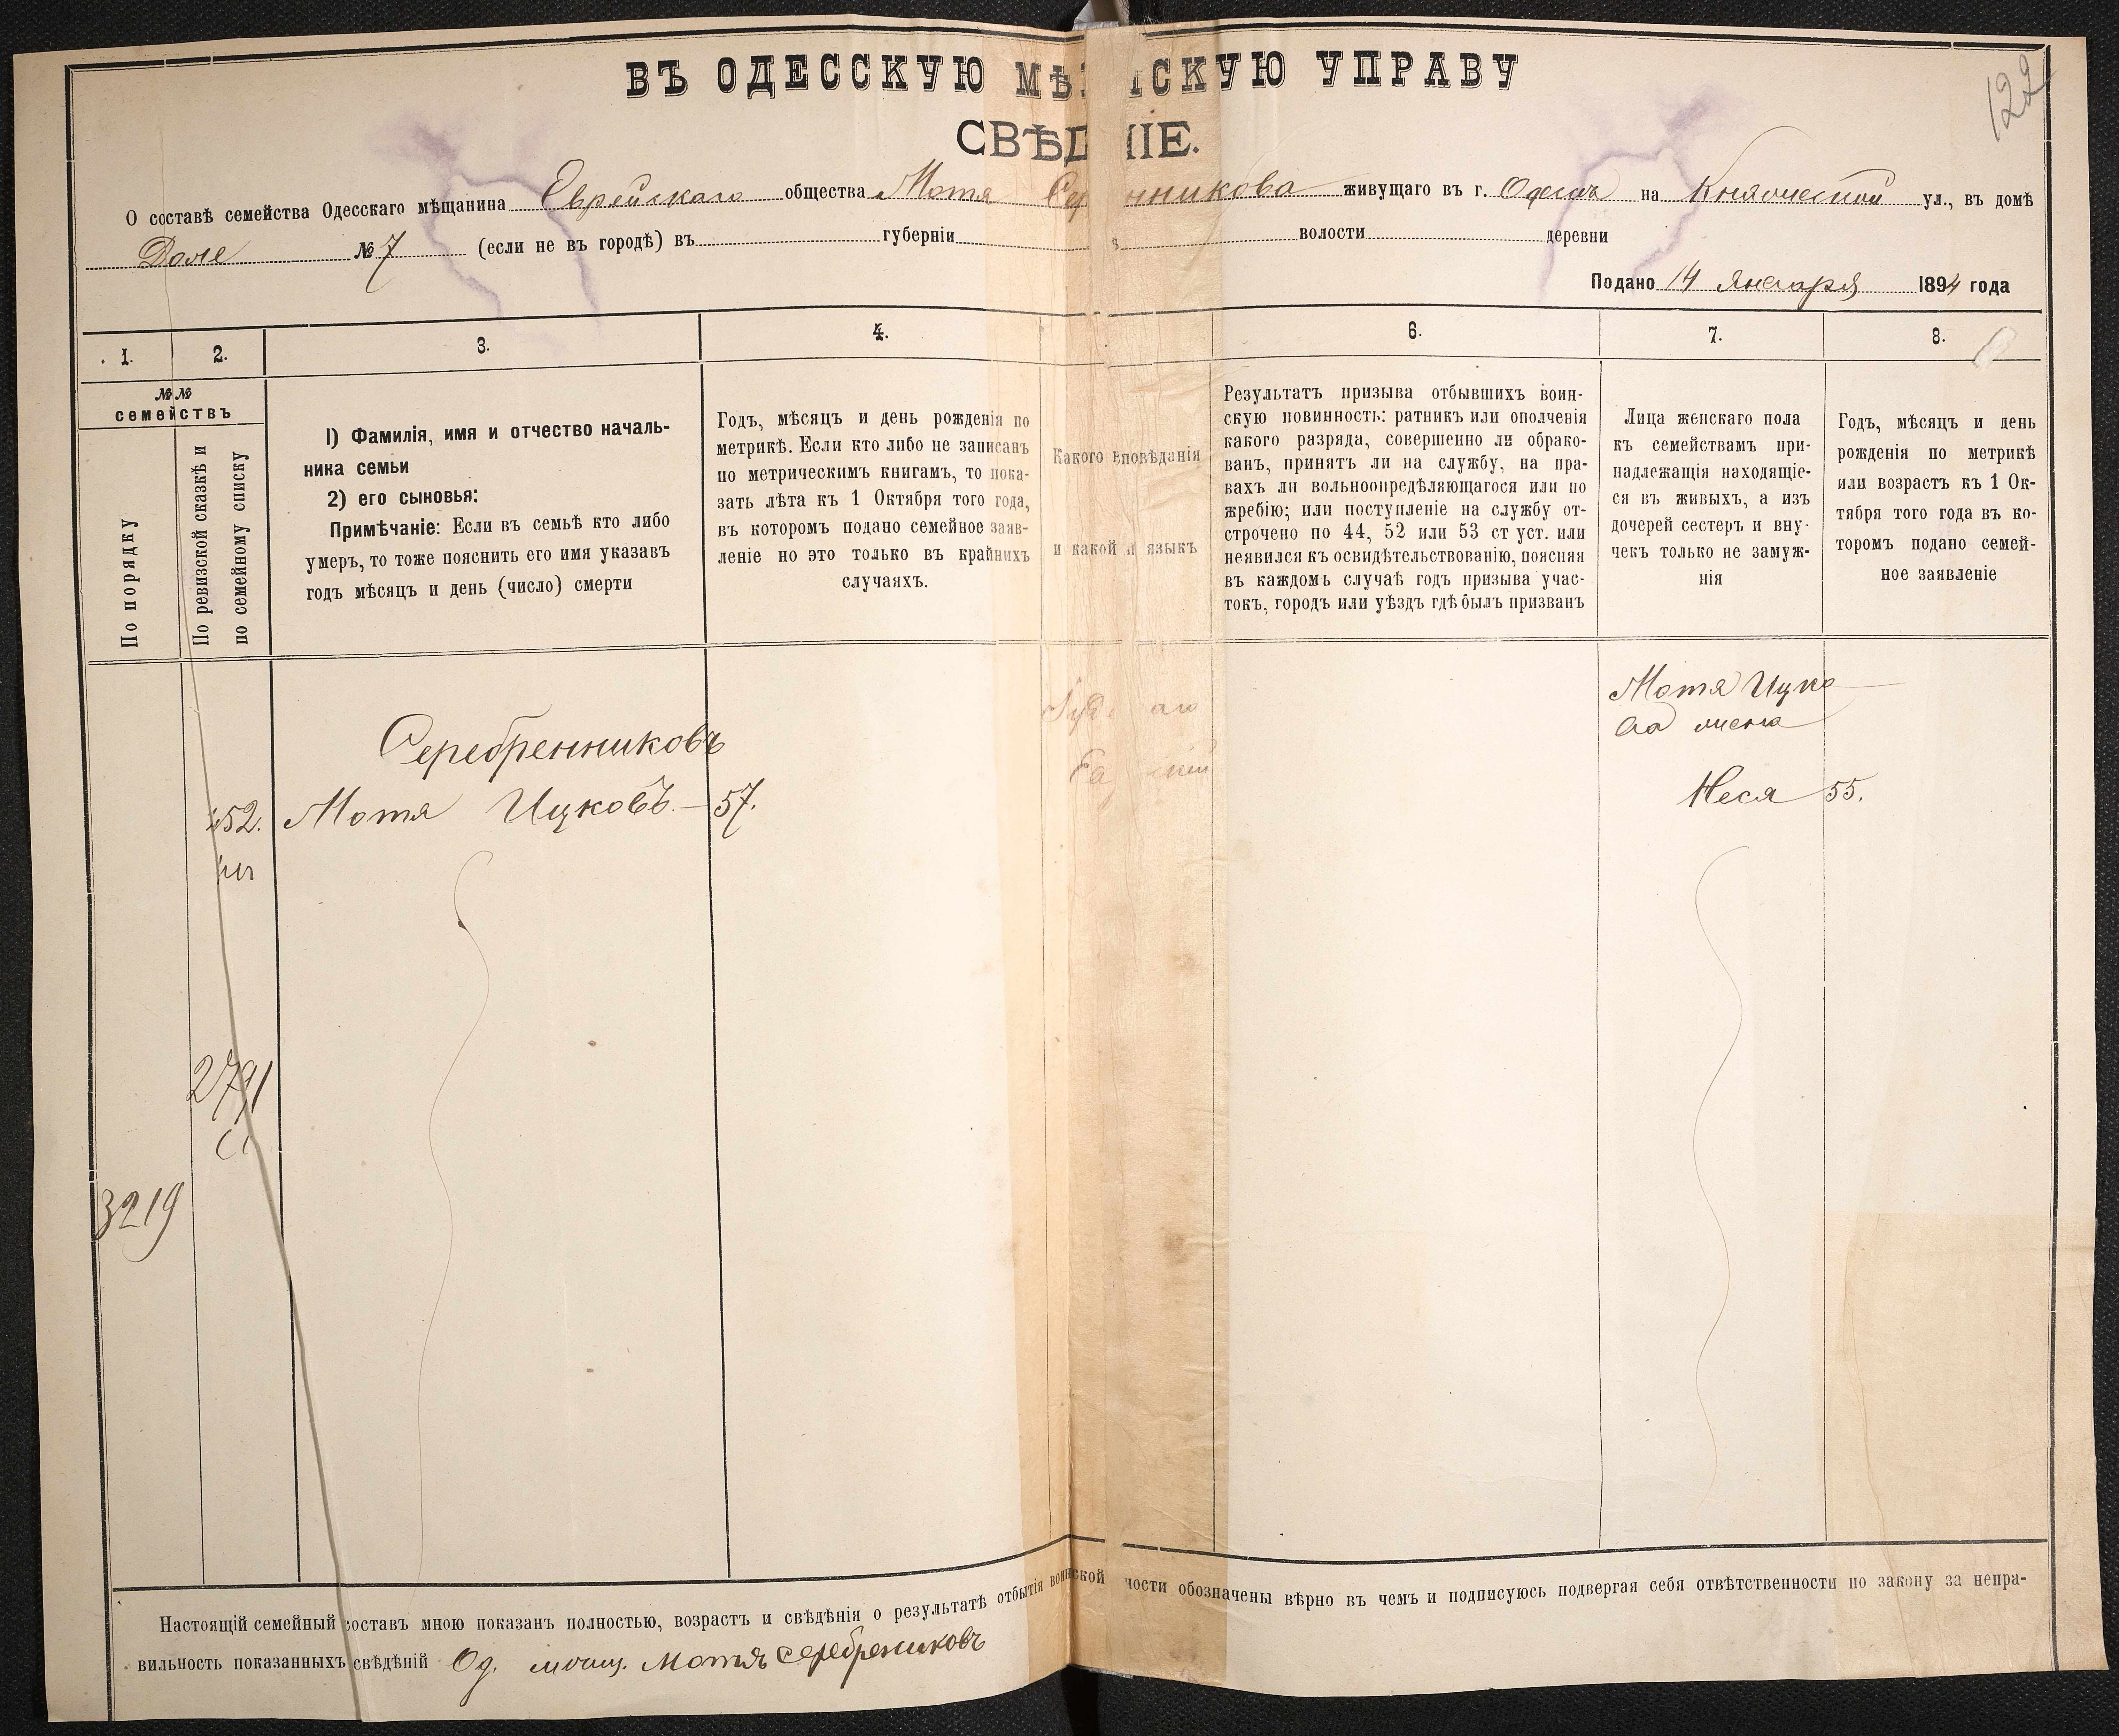 122
ВЪ ОДЕССКУЮ МѢЩ СКУЮ УПРАВУ
СВѢД НІЕ.
О составѣ семейства Одесскаго мѣщанина Еврейскаго общества Мотя Сер нникова живущаго въ г. Одессѣ на Княжеской ул., въ домѣ
Доле № 7 (если не въ городѣ) въ губерніи волости деревни
Подано 14 Января 1894 года
1. 2. 3. 4. 6. 7. 8.
№№ семействъ
По порядку
По ревизской сказкѣ и
по семейному списку
1) Фамилія, имя и отчество началь-
ника семьи
2) его сыновья:
Примѣчаніе: Если въ семьѣ кто либо
умеръ, то тоже пояснить его имя указавъ
годъ мѣсяцъ и день (число) смерти
Годъ, мѣсяцъ и день рожденія по
метрикѣ. Если кто либо не записанъ
по метрическимъ книгамъ, то пока-
зать лѣта къ 1 Октября того года,
въ которомъ подано семейное заяв-
леніе но это только въ крайнихъ
случаяхъ.
Какого повѣданія
и какой языкъ
Результатъ призыва отбывшихъ воин-
скую повинность: ратникъ или ополченія
какого разряда, совершенно ли обрако-
ванъ, принятъ ли на службу, на пра-
вахъ ли вольноопредѣляющагося или по
жребію; или поступленіе на службу от-
строчено по 44, 52 или 53 ст уст. или
неявился къ освидѣтельствованію, поясняя
въ каждомъ случаѣ годъ призыва учас-
токъ, городъ или уѣздъ гдѣ былъ призванъ
Лица женскаго пола
къ семействамъ при-
надлежащія находящіе-
ся въ живыхъ, а изъ
дочерей сестеръ и вну-
чекъ только не замуж-
нія
Годъ, мѣсяцъ и день
рожденія по метрикѣ
или возрастъ къ 1 Ок-
тября того года въ ко-
торомъ подано семей-
ное заявленіе
Серебренниковъ
452. Мотя Ицковъ. — 57.
Мотя Ицко
ва жена
Неся 55.
2791
3219
Настоящій семейный составъ мною показанъ полностью, возрастъ и свѣдѣнія о результатѣ отбытія воинской ности обозначены вѣрно въ чемъ и подписуюсь подвергая себя отвѣтственности по закону за непра-
вильность показанныхъ свѣдѣній Од. мѣщ. Мотя Серебрениковъ